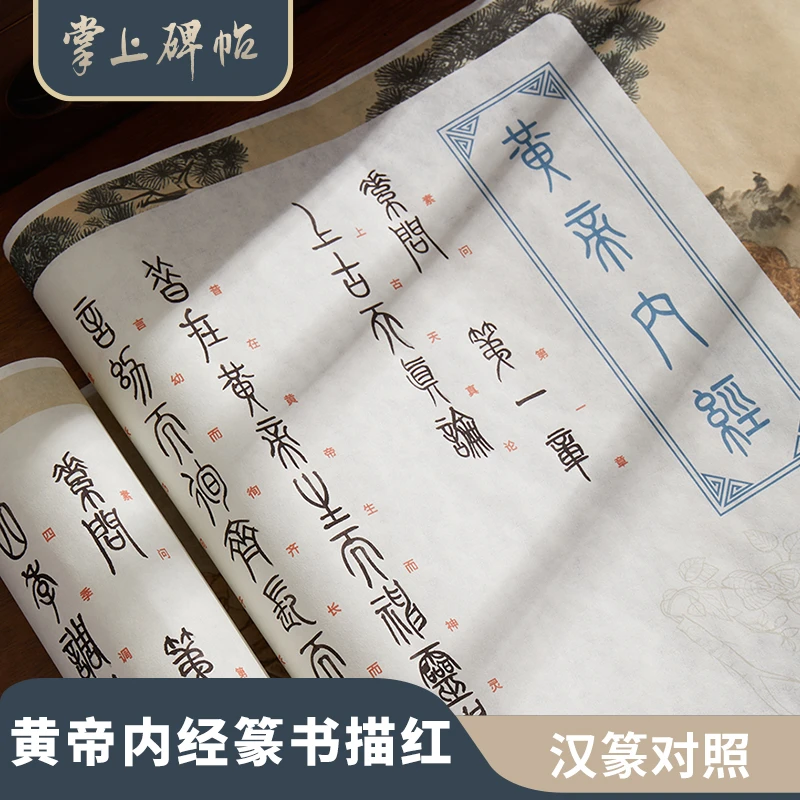 掌上碑帖
黄帝内經
第一章
第一章
素問
素问
上古天真論
上古天真论
昔在黄帝生而神靈
昔在黄帝生而神灵
言幼而徇齊長而
言幼而徇齐长而
素問
素问
四季調
四季调
第
第
黄帝内经篆书描红
汉篆对照